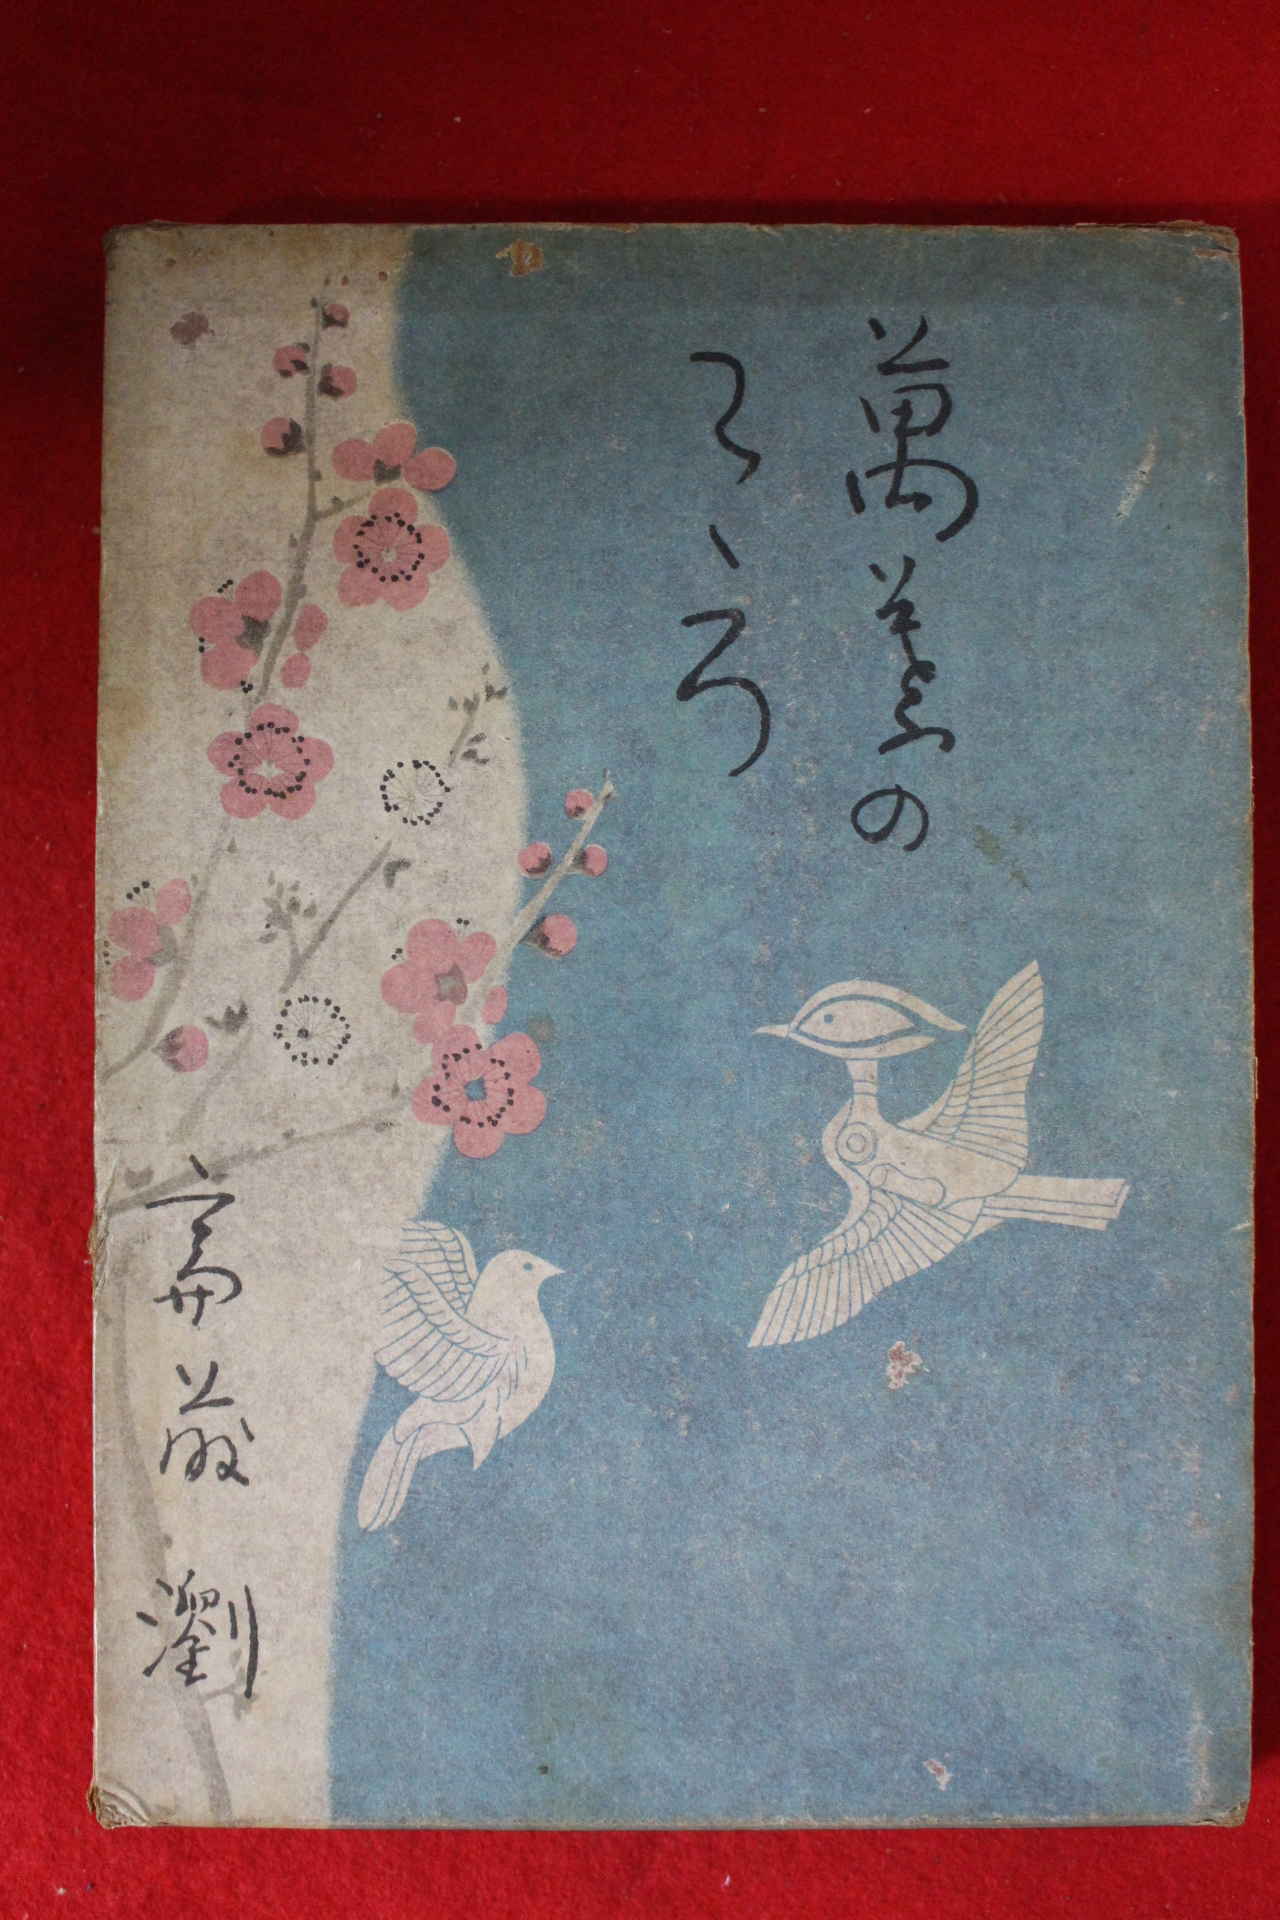 萬葉の
こゝろ
齋藤瀏